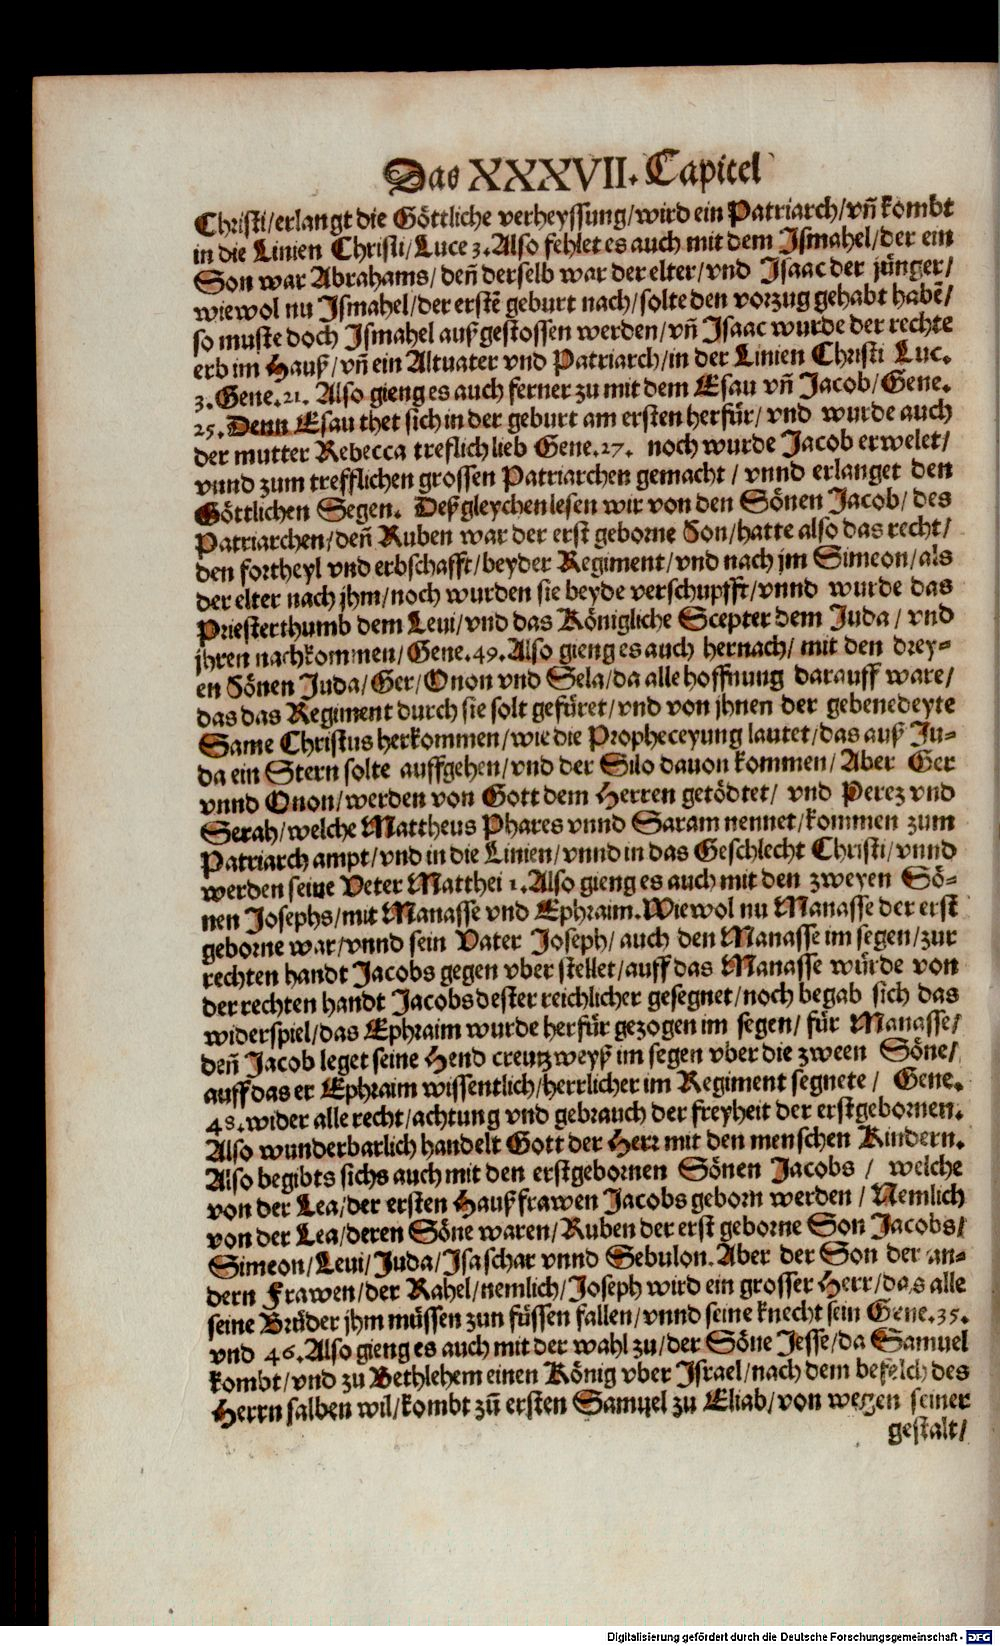 Das XXXVII. Capitel
Christi/erlangt die Göttliche verheyssung/wird ein Patriarch/vn̄ kombt
in die Linien Christi/Luce 3. Also fehlet es auch mit dem Ismahel/der ein
Son war Abrahams/den̄ derselb war der elter/vnd Isaac der jünger/
wiewol nu Ismahel/der erstē geburt nach/solte den vorzug gehabt habē/
so muste doch Ismahel außgestossen werden/vn̄ Isaac wurde der rechte
erb im Hauß/vn̄ ein Altuater vnd Patriarch/in der Linien Christi Luc.
3. Gene. 21. Also gieng es auch ferner zu mit dem Esau vn̄ Jacob/Gene.
25. Denn Esau thet sich in der geburt am ersten herfür/ vnd wurde auch
der mutter Rebecca treflich lieb Gene. 27. noch wurde Jacob erwelet/
vnnd zum trefflichen grossen Patriarchen gemacht/ vnnd erlanget den
Göttlichen Segen. Deßgleychen lesen wir von den Sönen Jacob/ des
Patriarchen/den̄ Ruben war der erst geborne Son/hatte also das recht/
den fortheyl vnd erbschafft/beyder Regiment/vnd nach jm Simeon/als
der elter nach jhm/noch wurden sie beyde verschupfft/vnnd wurde das
Priesterthumb dem Leui/vnd das Königliche Scepter dem Juda/ vnd
jhren nachkommen/Gene. 49. Also gieng es auch hernach/ mit den drey-
en Sönen Juda/Ger/Onon vnd Sela/da alle hoffnung darauff ware/
das das Regiment durch sie solt gefüret/vnd von jhnen der gebenedeyte
Same Christus herkommen/wie die Propheceyung lautet/das auß Ju-
da ein Stern solte auffgehen/vnd der Silo dauon kommen/ Aber Ger
vnnd Onon/werden von Gott dem Herren getödtet/ vnd Perez vnd
Serah/welche Mattheus Phares vnnd Saram nennet/kommen zum
Patriarch ampt/vnd in die Linien/vnnd in das Geschlecht Christi/vnnd
werden seine Veter Matthei 1. Also gieng es auch mit den zweyen Sö-
nen Josephs/mit Manasse vnd Ephraim. Wiewol nu Manasse der erst
geborne war/vnnd sein Vater Joseph/ auch den Manasse im segen/zur
rechten handt Jacobs gegen vber stellet/auff das Manasse würde von
der rechten handt Jacobs dester reichlicher gesegnet/noch begab sich das
widerspiel/das Ephraim wurde herfür gezogen im segen/ für Manasse/
den̄ Jacob leget seine Hend creutzweyß im segen vber die zween Söne/
auff das er Ephraim wissentlich/herrlicher im Regiment segnete/ Gene.
48. wider alle recht/achtung vnd gebrauch der freyheit der erstgebornen.
Also wunderbarlich handelt Gott der Herr mit den menschen Kindern.
Also begibts sichs auch mit den erstgebornen Sönen Jacobs/ welche
von der Lea/der ersten Haußfrawen Jacobs geborn werden/ Nemlich
von der Lea/deren Söne waren/Ruben der erst geborne Son Jacobs/
Simeon/Leui/Juda/Isaschar vnnd Sebulon. Aber der Son der an-
dern Frawen/der Rahel/nemlich/Joseph wird ein grosser Herr/das alle
seine Brüder jhm müssen zun füssen fallen/vnnd seine knecht sein Gene. 35.
vnd 46. Also gieng es auch mit der wahl zu/der Söne Jesse/da Samuel
kombt/vnd zu Bethlehem einen König vber Israel/nach dem befelch des
Herrn salben wil/kombt zū ersten Samuel zu Eliab/von wegen seiner
gestalt/
Digitalisierung gefördert durch die Deutsche Forschungsgemeinschaft - DFG